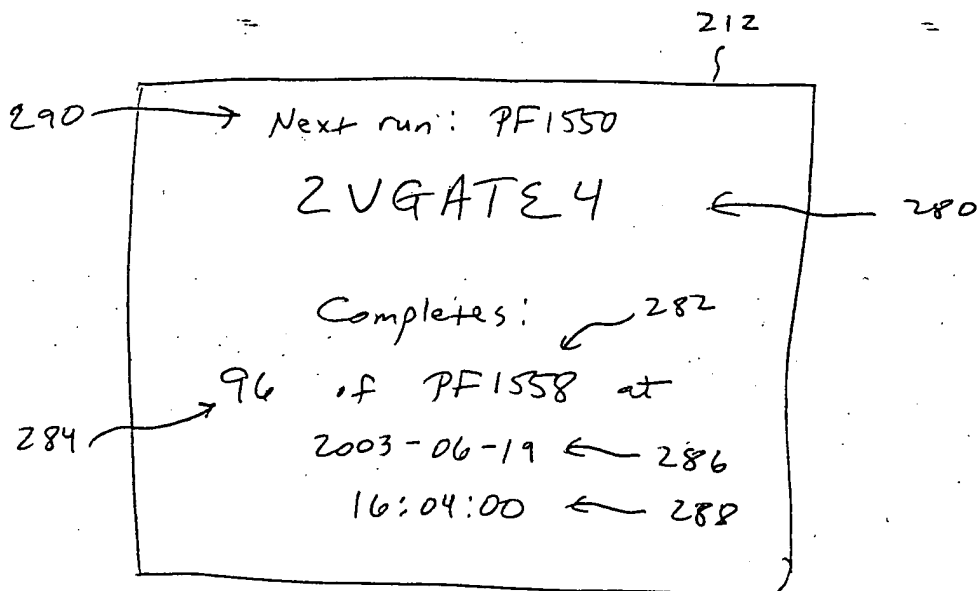 212
290 Next run: PF1550
2VGATE4 280
Completes: 282
96 of PF1558 at
284 2003-06-19 286
16:04:00 288